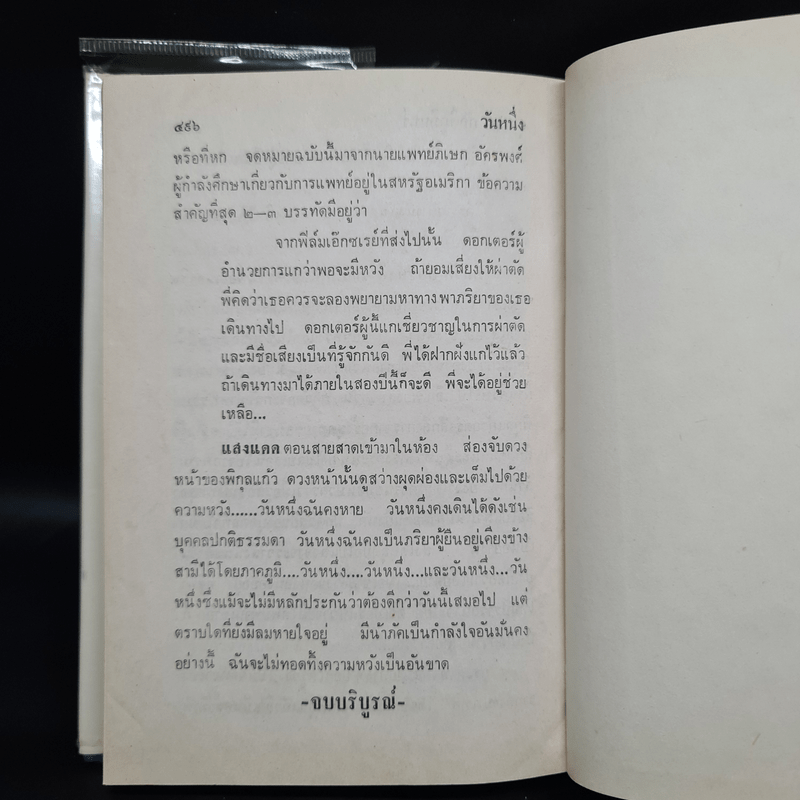 ๔๙๖ วันหนึ่ง
หรือที่หก จดหมายฉบับนี้มาจากนายแพทย์ภิเษก อัครพงศ์
ผู้กำลังศึกษาเกี่ยวกับการแพทย์อยู่ในสหรัฐอเมริกา ข้อความ
สำคัญที่สุด ๒—๓ บรรทัดมีอยู่ว่า
จากฟิล์มเอ๊กซเรย์ที่ส่งไปนั้น ดอกเตอร์ผู้
อำนวยการแกว่าพอจะมีหวัง ถ้ายอมเสี่ยงให้ผ่าตัด
พี่คิดว่าเธอควรจะลองพยายามหาทางพาภริยาของเธอ
เดินทางไป ดอกเตอร์ผู้นี้แกเชี่ยวชาญในการผ่าตัด
และมีชื่อเสียงเป็นที่รู้จักกันดี พี่ได้ฝากฝังแกไว้แล้ว
ถ้าเดินทางมาได้ภายในสองปีนี้ก็จะดี พี่จะได้อยู่ช่วย
เหลือ...
แสงแดดตอนสายสาดเข้ามาในห้อง ส่องจับดวง
หน้าของพิกุลแก้ว ดวงหน้านั้นดูสว่างผุดผ่องและเต็มไปด้วย
ความหวัง......วันหนึ่งฉันคงหาย วันหนึ่งคงเดินได้ดังเช่น
บุคคลปกติธรรมดา วันหนึ่งฉันคงเป็นภริยาผู้ยืนอยู่เคียงข้าง
สามีได้โดยภาคภูมิ....วันหนึ่ง....วันหนึ่ง...และวันหนึ่ง...วัน
หนึ่งซึ่งแม้จะไม่มีหลักประกันว่าต้องดีกว่าวันนี้เสมอไป แต่
ตราบใดที่ยังมีลมหายใจอยู่ มีน้าภัคเป็นกำลังใจอันมั่นคง
อย่างนี้ ฉันจะไม่ทอดทิ้งความหวังเป็นอันขาด
-จบบริบูรณ์-